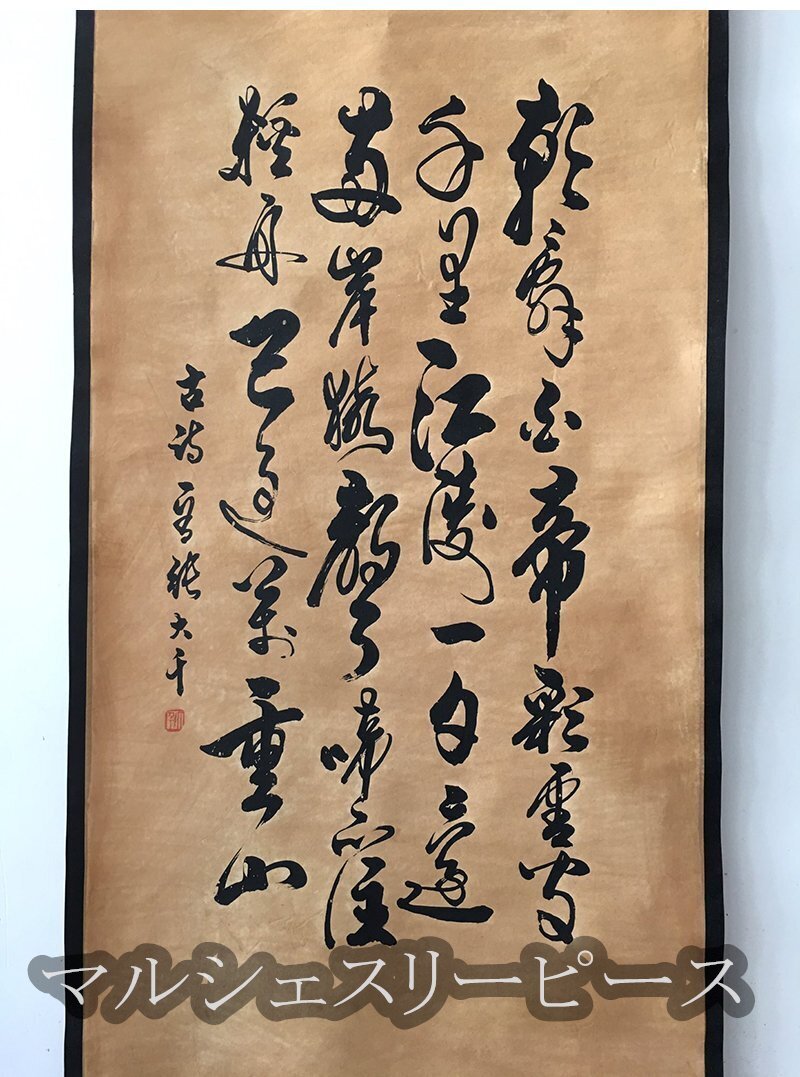 朝辭白帝彩雲間
千里江陵一日還
兩岸猿聲啼不住
輕舟已過萬重山
古詩一首張大千
マルシェスリーピース